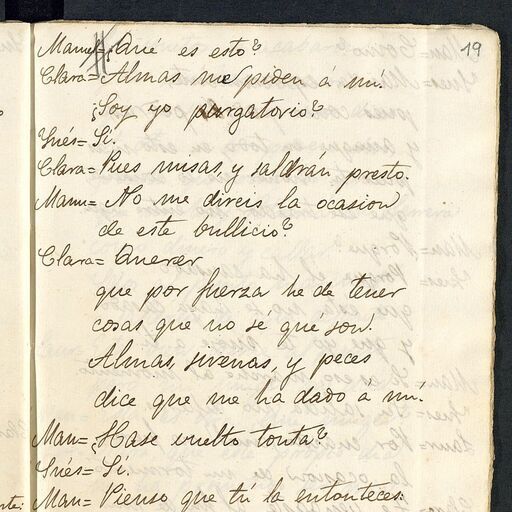 19
Manu= ¿Qué es esto?
Clara= Almas me piden á mí.
¿Soy yo purgatorio?
Ynés= Sí.
Clara= Pues misas, y saldrán presto.
Manu= No me direis la ocasion
de este bullicio?
Clara= Querer
que por fuerza he de tener
cosas que no sé qué son.
Almas, sirenas, y peces
dice que me ha dado á mí.
Man= ¿Hase vuelto tonta?
Ynés= Sí.
Man= Pienso que tú la entonteces.